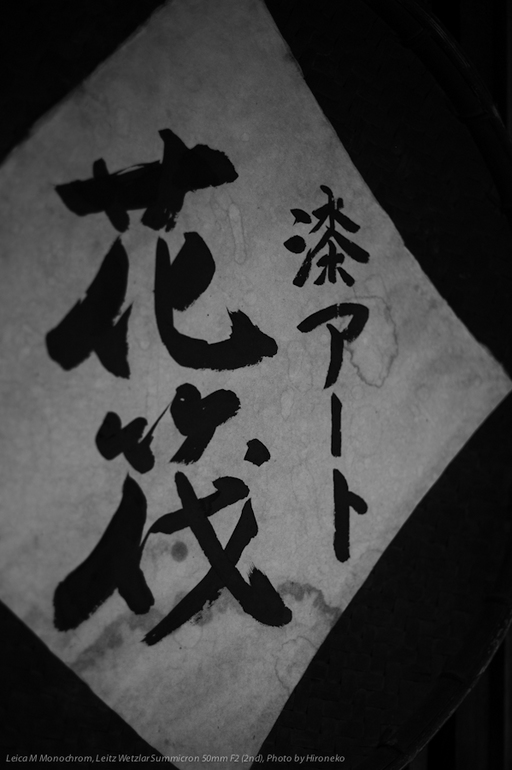 漆アート
花筏
Leica M Monochrom, Leitz Wetzlar Summicron 50mm F2 (2nd), Photo by Hironeko